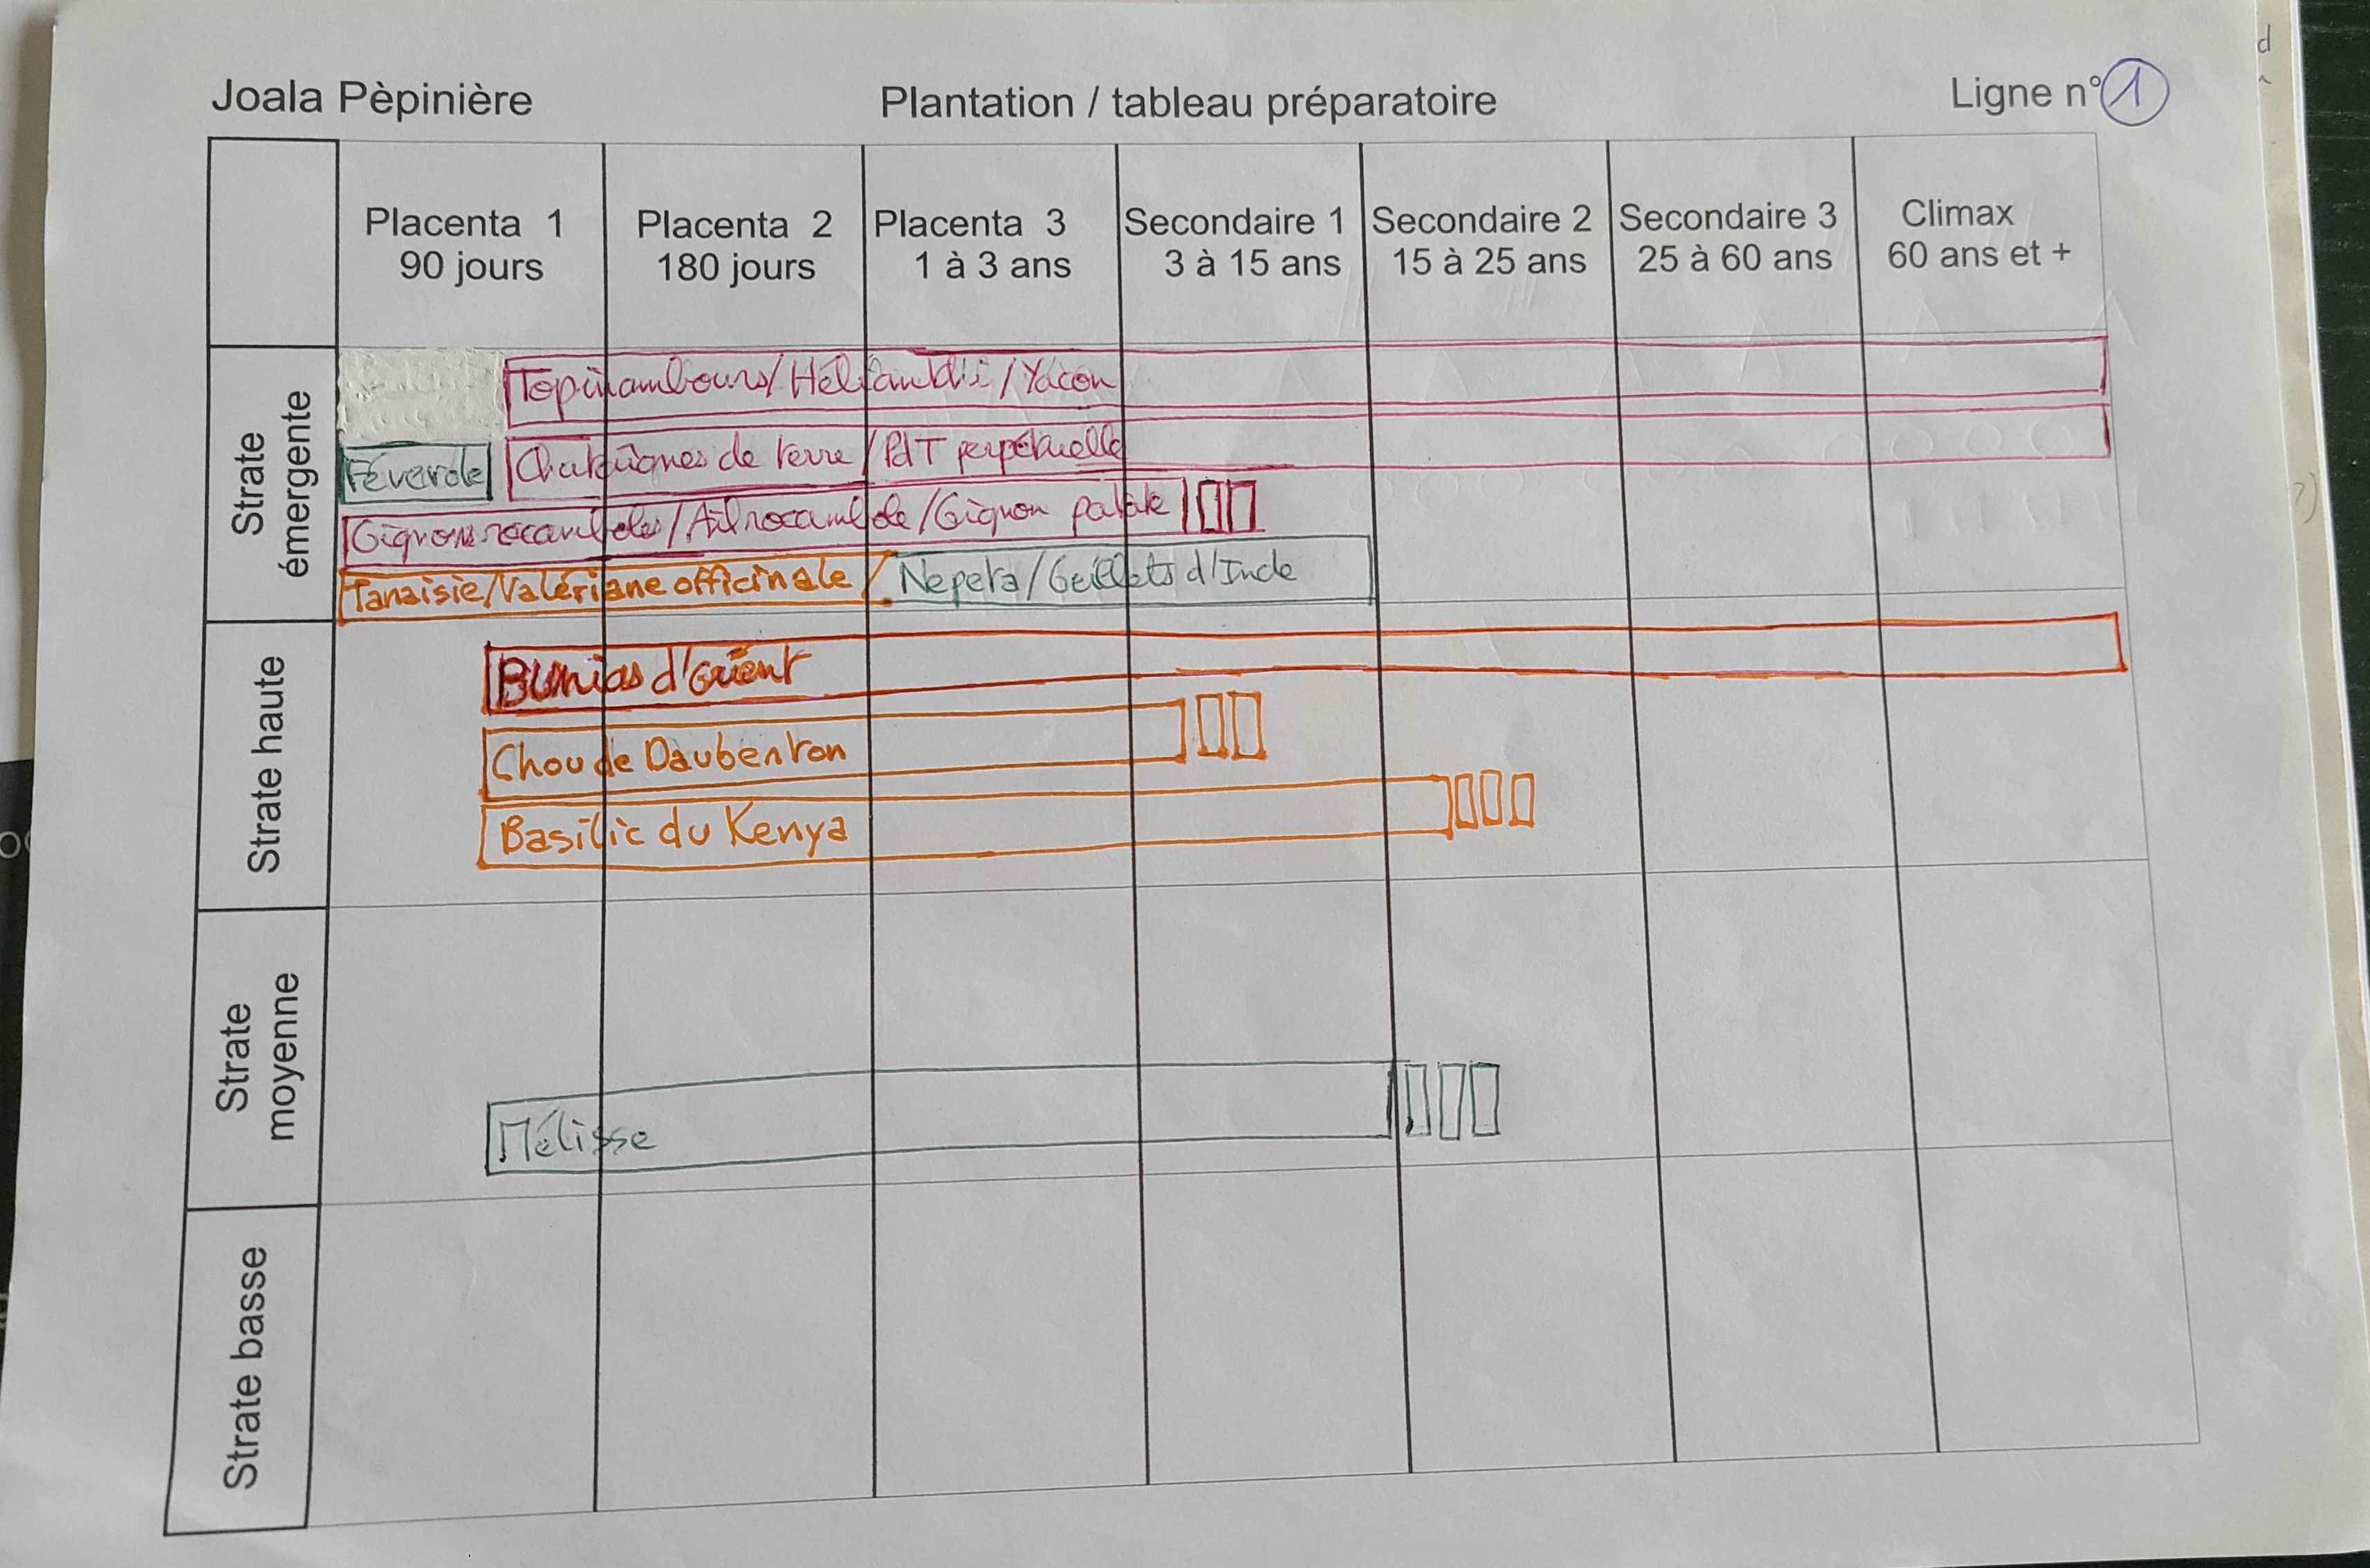 Joala Pèpinière Plantation / tableau préparatoire Ligne n° 1
Placenta 1 Placenta 2 Placenta 3 Secondaire 1 Secondaire 2 Secondaire 3 Climax
90 jours 180 jours 1 à 3 ans 3 à 15 ans 15 à 25 ans 25 à 60 ans 60 ans et +
Strate émergente
Topinambours/Hélianthi/Yacon
Féverole Chataîgnes de terre/PdT perpétuelle
Oignons rocamboles/Ail rocambole/Oignon patate
Tanaisie/Valériane officinale/ Nepeta/Oeillets d'Inde
Strate haute
Bunias d'Orient
Chou de Daubenton
Basilic du Kenya
Strate moyenne
Mélisse
Strate basse